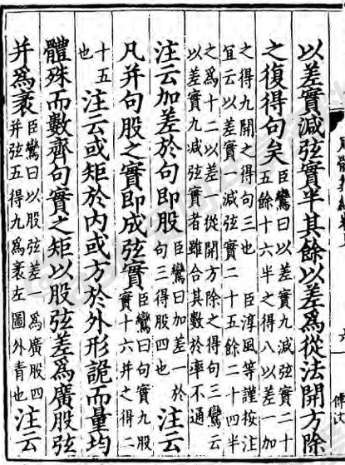 以差實減弦實半其餘以差爲從法開方除
之復得句矣
臣鸞曰以差實九減弦實二十
五餘十六半之得八以差一加
之得九開之得句三也 臣淳風等謹按注
宜云以差實一減弦實二十五餘二十四半
之爲十二以差一從開方除之得句三鸞云
以差實九減弦實者雖合其數於率不通
注云加差於句即股
臣鸞曰加差一於
句三得股四也
注云
凡并句股之實即成弦實
臣鸞曰句實九股
實十六并之得二
十五
也
注云或矩於內或方於外形詭而量均
體殊而數齊句實之矩以股弦差爲廣股弦
并爲袤
臣鸞曰以股弦差 爲廣股四
并弦五得九爲袤左圖外青也
注云